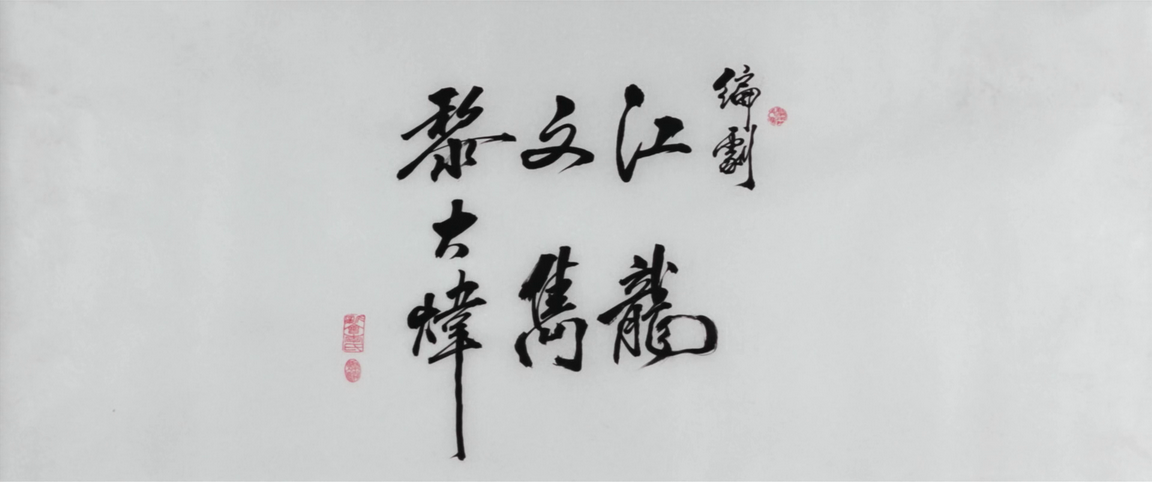 編劇
江龍
文雋
黎大煒